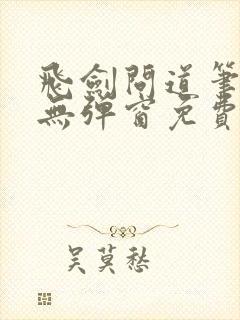 飛劍問道筆
無彈窗免費
吳莫愁